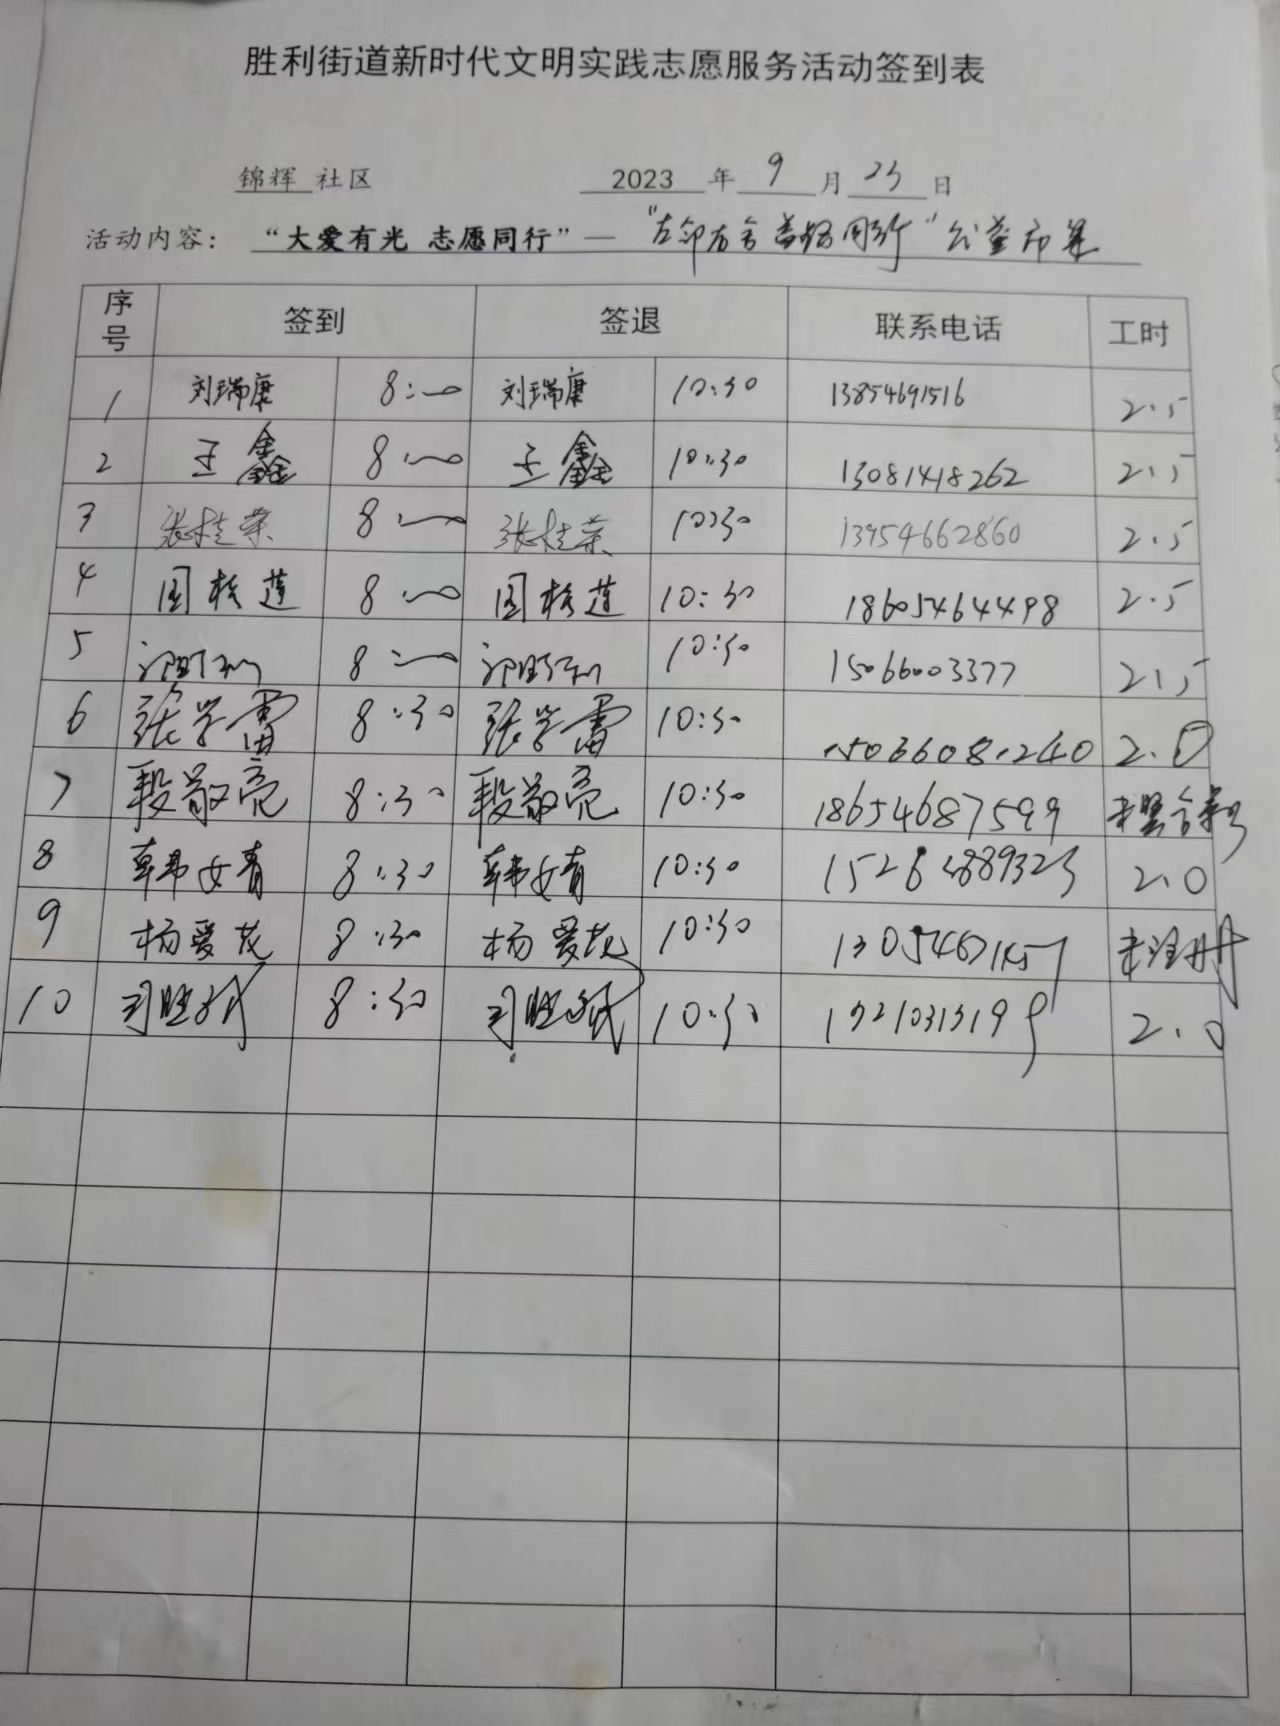 胜利街道新时代文明实践志愿服务活动签到表
锦辉 社区 2023 年 9 月 23 日
活动内容： “大爱有光 志愿同行”— “左邻右舍 益路同行”公益市集
序号 签到 签退 联系电话 工时
1 刘瑞康 8:00 刘瑞康 10:30 13854691516 2.5
2 王鑫 8:00 王鑫 10:30 13081418262 2.5
3 张桂荣 8:00 张桂荣 10:30 13954662860 2.5
4 8:00 10:30 18605464498 2.5
5 8:00 10:30 15066003377 2.5
6 张学雷 8:30 张学雷 10:30 15066081240 2.0
7 段敬亮 8:30 段敬亮 10:30 18654687599
8 韩女青 8:30 韩女青 10:30 2.0
9 杨爱花 8:30 杨爱花 10:30
10 8:30 10:30 2.0